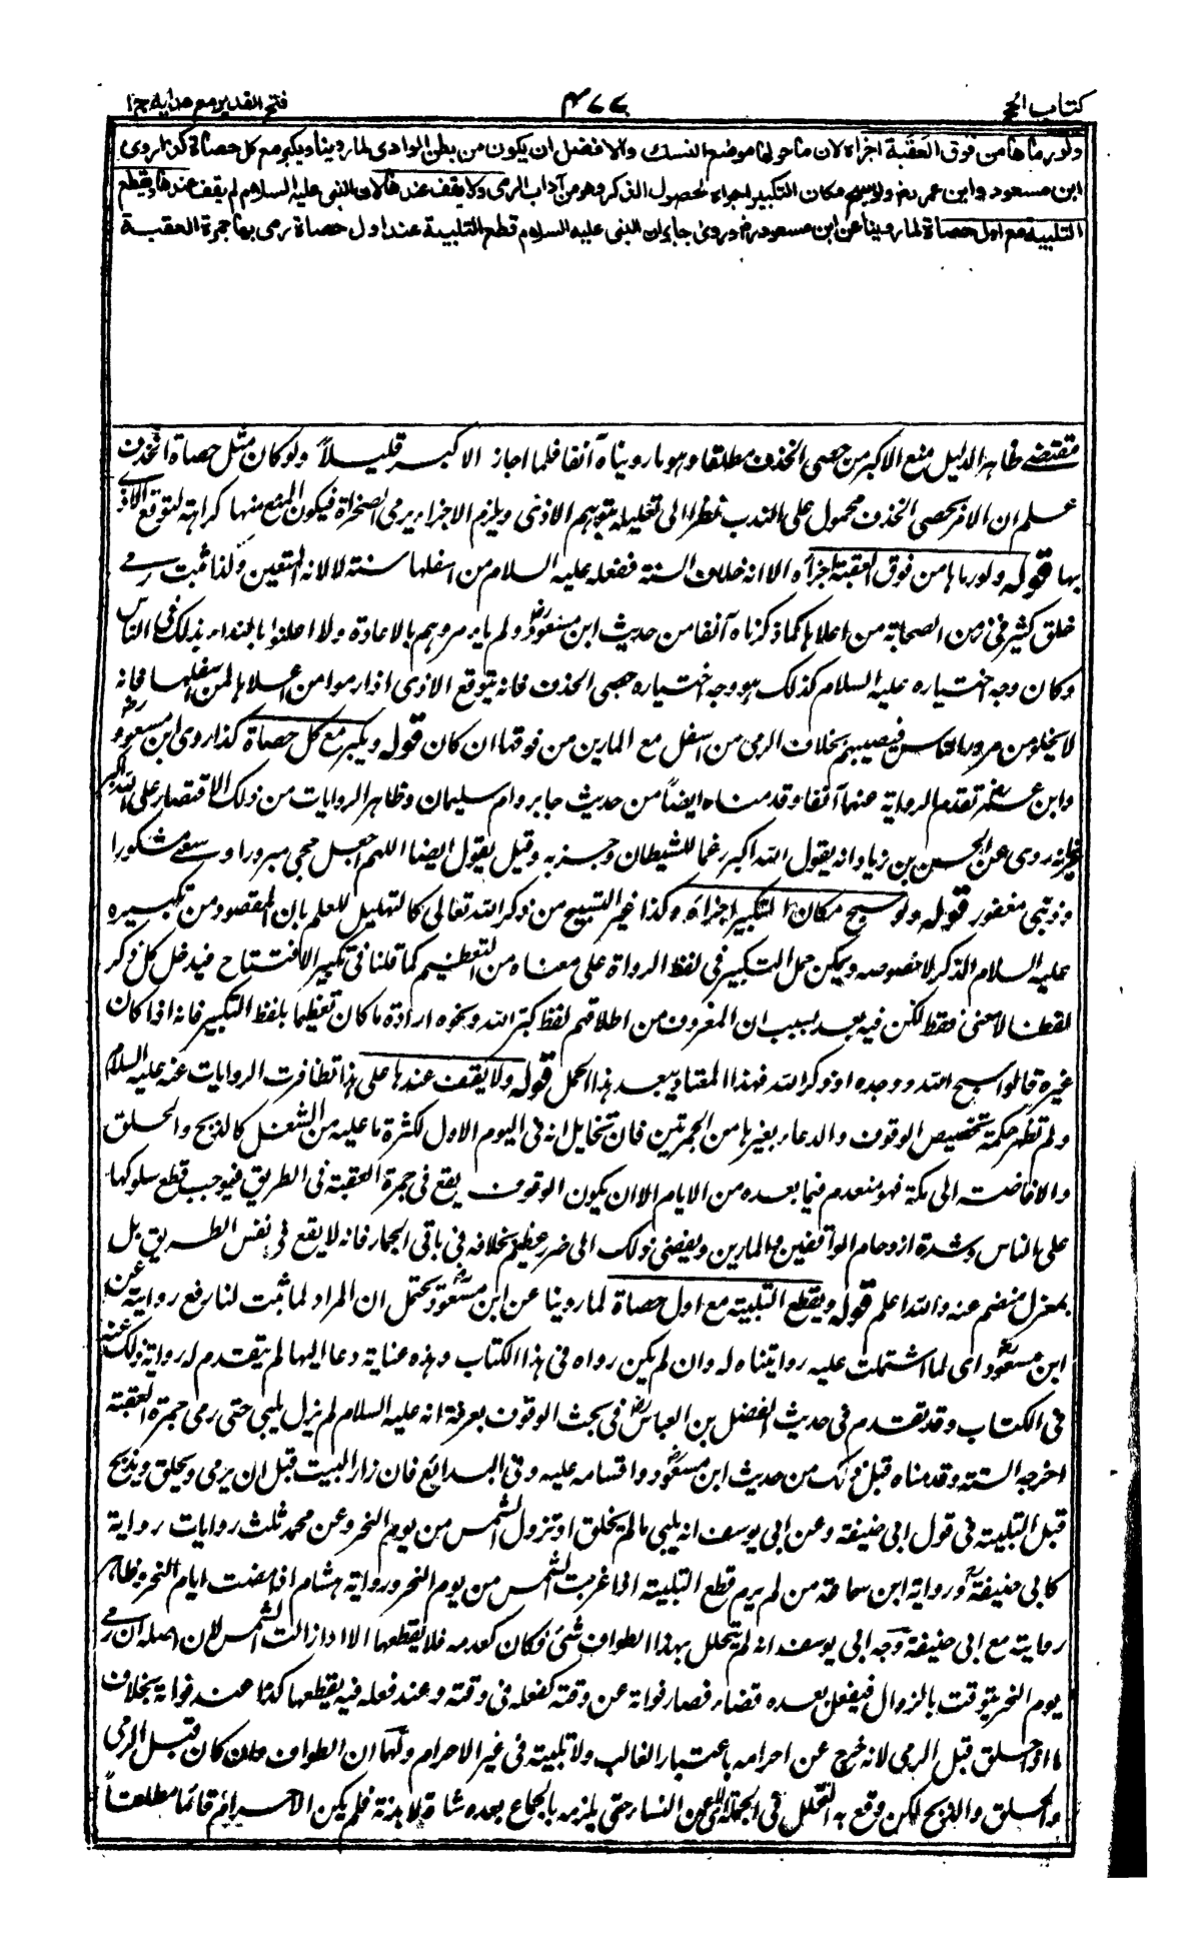 كتاب الحج
٣٧٧
فتح القدير مع هدايه ج١
ولو رماها من فوق العقبة اجزاه لان ما حولها موضع النسك والافضل ان يكون من بطن الوادى لما روينا ويكبر مع كل حصاة كذا روى
ابن مسعود وابن عمر رض ولو سبح مكان التكبير اجزاه لحصول الذكر وهو من آداب الرمى ولا يقف عندها لان النبى عليه السلام لم يقف عندها ويقطع
التلبية مع اول حصاة لما روينا عن ابن مسعود رض وروى جابر ان النبى عليه السلام قطع التلبية عند اول حصاة رمى بها جمرة العقبة
مقتضے ظاهر الدليل منع الاكبر من حصى الخذف مطلقا وهو ما رويناه آنفا فلما اجاز الاكبر قليلاً ولو كان مثل حصاة الخذف
علم ان الامر بحصى الخذف محمول على الندب نظرا الى تعليله بتوهم الاذى ويلزم الاجزاء برمى الصخرات فيكون المنع منها كراهة لتوقع الاذى
بها قوله ولو رماها من فوق العقبة اجزاه الا انه خلاف السنة ففعله عليه السلام من اسفلها سنة لا لانه المتعين ولذا ثبت رمى
خلق كثير فى زمن الصحابة من اعلاها كما ذكرناه آنفا من حديث ابن مسعود رض ولم يأمروهم بالاعادة ولا اعلنوا بالنداء بذلك فى الناس
وكان وجه اختياره عليه السلام كذلك هو وجه اختياره حصى الخذف فانه يتوقع الاذى اذا رموا من اعلاها لمن اسفلها فانه
لا يخلو من مرور الناس فيصيبهم بخلاف الرمى من اسفل مع المارين من فوقها ان كان قوله ويكبر مع كل حصاة كذا روى ابن مسعود رض
وابن عمر رض تقدم الرواية عنهما آنفا وقدمناه ايضاً من حديث جابر وام سليمان وظاهر الروايات من ذلك الاقتصار على الله اكبر
غير انه روى عن الحسن بن زياد انه يقول الله اكبر رغما للشيطان وحزبه وقيل يقول ايضا اللهم اجعل حجى مبرورا وسعى مشكورا
وذنبى مغفورا قوله ولو سبح مكان التكبير اجزاه وكذا غير التسبيح من ذكر الله تعالى كالتهليل للعلم بان المقصود من تكبيره
عليه السلام الذكر لا خصوصه ويمكن حمل التكبير فى لفظ الرواة على معناه من التعظيم كما قلنا فى تكبير الافتتاح فيدخل كل ذكر
لفظا لا معنى فقط لكن فيه بعد بسبب ان المعروف من اطلاقهم لفظ كبر الله ونحوه ارادة ما كان تعظيما بلفظ التكبير فانه اذا كان
غيره قالوا سبح الله ووحده او ذكر الله فهذا المعتاد يبعد هذا الحمل قوله ولا يقف عندها على هذا تظافرت الروايات عنه عليه السلام
ولم تظهر حكمة تخصيص الوقوف والدعاء بغيرها من الجمرتين فان تخايل انه فى اليوم الاول لكثرة ما عليه من الشغل كالذبح والحلق
والافاضة الى مكة فهو منعدم فيما بعده من الايام الا ان يكون الوقوف يقع فى جمرة العقبة فى الطريق فيوجب قطع سلوكها
على الناس وشدة ازدحام الواقفين والمارين ويفضى ذلك الى ضرر عظيم بخلافه فى باقى الجمار فانه لا يقع فى نفس الطريق بل
بمعزل منضم عنه والله اعلم قوله ويقطع التلبية مع اول حصاة لما روينا عن ابن مسعود رض يحتمل ان المراد لما ثبت لنا رفع رواية عن
ابن مسعود رض اى لما اشتملت عليه روايتنا له وان لم يكن رواه فى هذا الكتاب وهذه عناية دعا اليها لم يتقدم له رواية ذلك عنه
فى الكتاب وقد تقدم فى حديث الفضل بن العباس رض فى بحث الوقوف بعرفة انه عليه السلام لم يزل يلبى حتى رمى جمرة العقبة
اخرجه الستة وقدمناه قبل ذلك من حديث ابن مسعود رض واقسامه عليه وفى البدائع فان زار البيت قبل ان يرمى ويحلق ويذبح
قبل التلبية فى قول ابى حنيفة وعن ابى يوسف انه يلبى ما لم يحلق او تزول الشمس من يوم النحر وعن محمد ثلث روايات رواية
كابى حنيفة رح ورواية ابن سماعة من لم يرم قطع التلبية اذا غربت الشمس من يوم النحر ورواية هشام اذا مضت ايام النحر وظاهر
روايته مع ابى حنيفة وجه ابى يوسف انه لم يتحلل بهذا الطواف شئ فكان كعدمه فلا يقطعها الا اذا زالت الشمس لان اصله ان رمى
يوم النحر يتوقت بالزوال فيفعل بعده قضاء فصار فواته عن وقته كفعله فى وقته وعند فعله فيه يقطعها كذا عند فواته بخلاف
ما اذا حلق قبل الرمى لانه خرج عن احرامه باعتبار الغالب ولا تلبية فى غير الاحرام ولهما ان الطواف وان كان قبل الرمى
والحلق والذبح لكن وقع به التحلل فى الجملة عن النساء حتى يلزمه بالجماع بعده شاة لا بدنة فلم يكن الاحرام قائما مطلقاً